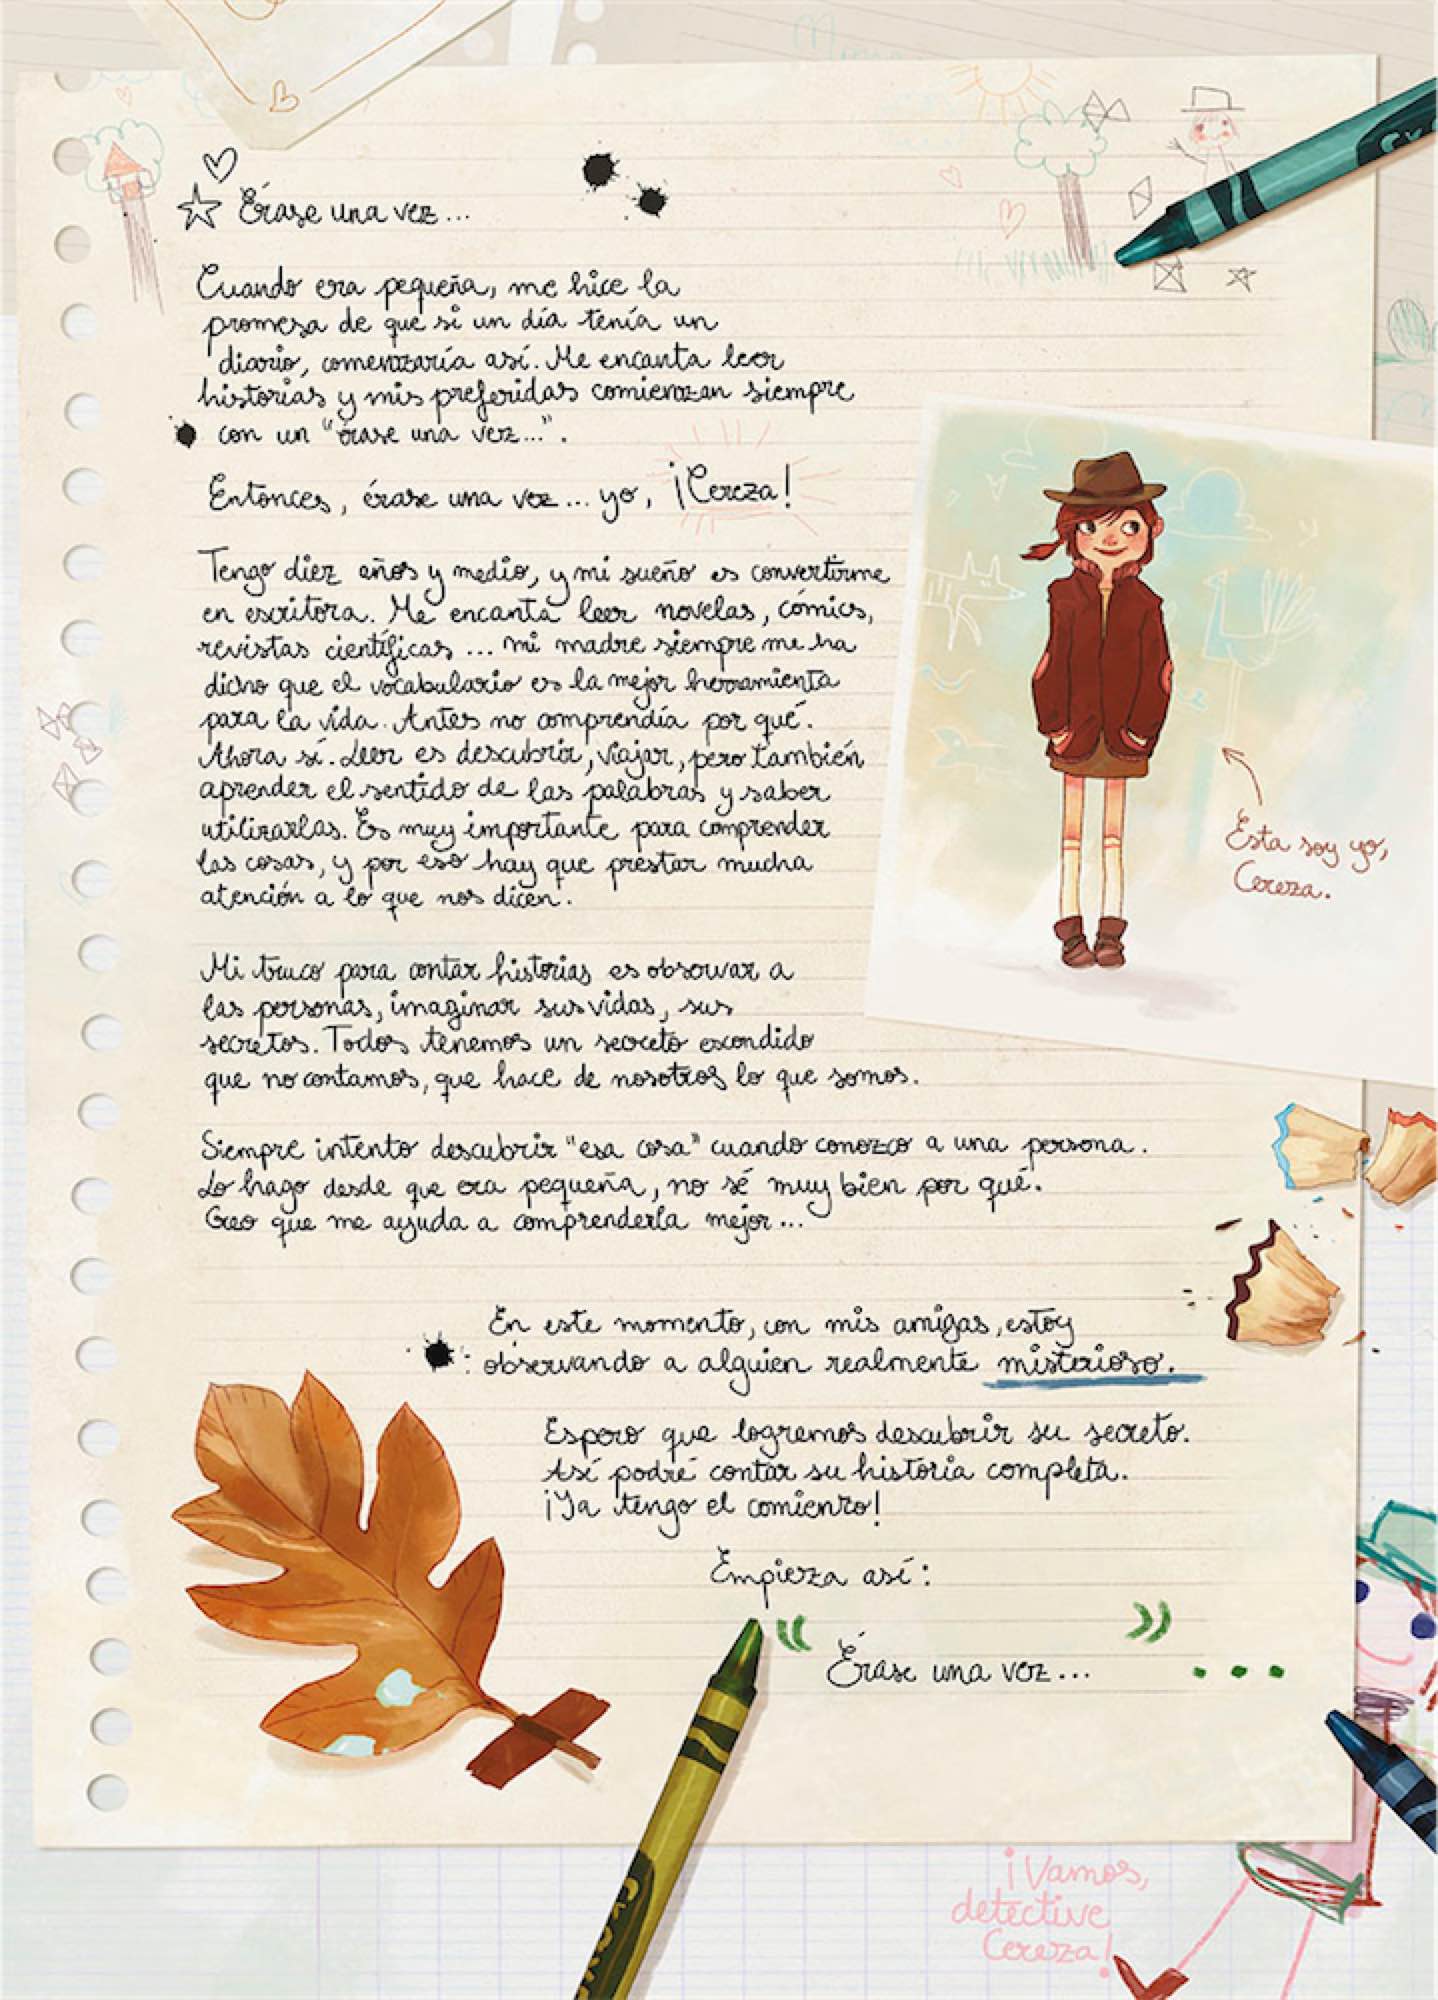 Érase una vez...
Cuando era pequeña, me hice la
promesa de que si un día tenía un
diario, comenzaría así. Me encanta leer
historias y mis preferidas comienzan siempre
con un "érase una vez...".
Entonces, érase una vez... yo, ¡Cereza!
Tengo diez años y medio, y mi sueño es convertirme
en escritora. Me encanta leer novelas, cómics,
revistas científicas ... mi madre siempre me ha
dicho que el vocabulario es la mejor herramienta
para la vida. Antes no comprendía por qué.
Ahora sí. Leer es descubrir, viajar, pero también
aprender el sentido de las palabras y saber
utilizarlas. Es muy importante para comprender
las cosas, y por eso hay que prestar mucha
atención a lo que nos dicen.
Esta soy yo,
Cereza.
Mi truco para contar historias es observar a
las personas, imaginar sus vidas, sus
secretos. Todos tenemos un secreto escondido
que no contamos, que hace de nosotros lo que somos.
Siempre intento descubrir "esa cosa" cuando conozco a una persona.
Lo hago desde que era pequeña, no sé muy bien por qué.
Creo que me ayuda a comprenderla mejor...
En este momento, con mis amigas, estoy
observando a alguien realmente misterioso.
Espero que logremos descubrir su secreto.
Así podré contar su historia completa.
¡Ya tengo el comienzo!
Empieza así:
« Érase una vez... » ...
¡Vamos,
detective
Cereza!